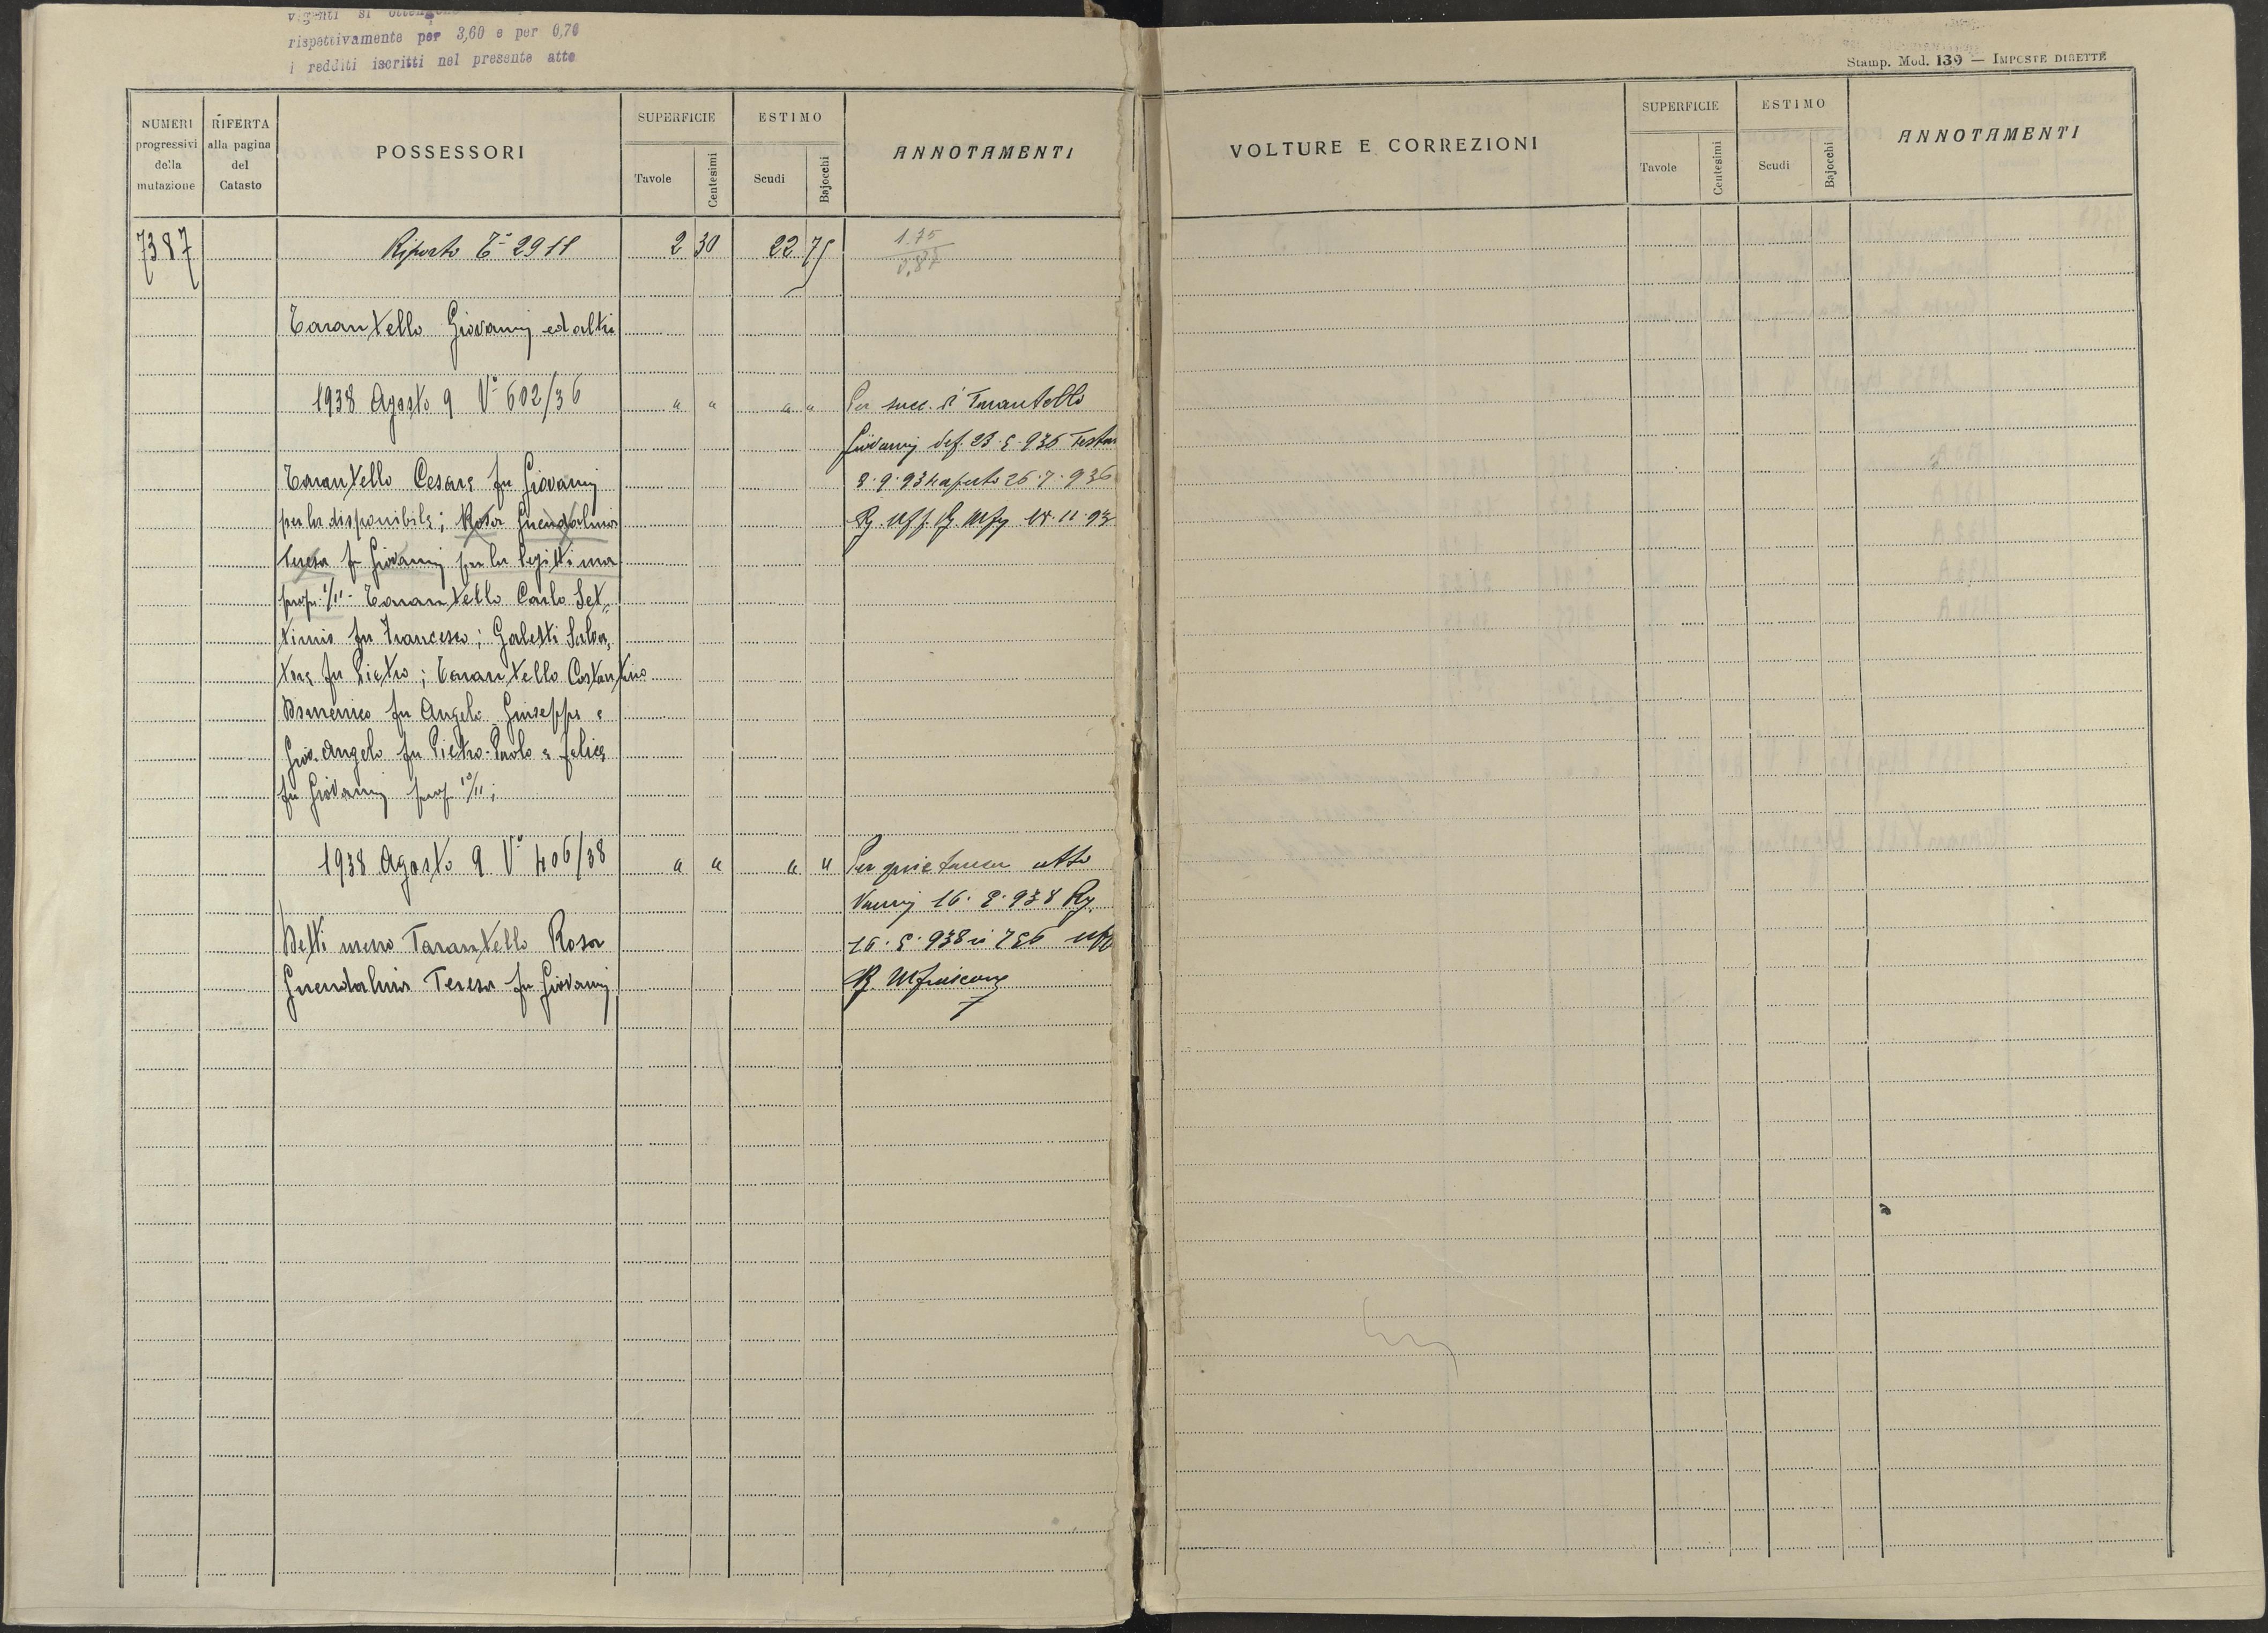 vigenti si ottengono
rispettivamente per 3,60 e per 0,70
i redditi iscritti nel presente atto
Stamp. Mod. 139 — IMPOSTE DIRETTE
NUMERI progressivi della mutazione
RIFERTA alla pagina del Catasto
POSSESSORI
SUPERFICIE
Tavole
Centesimi
ESTIMO
Scudi
Bajocchi
ANNOTAMENTI
VOLTURE E CORREZIONI
SUPERFICIE
Tavole
Centesimi
ESTIMO
Scudi
Bajocchi
ANNOTAMENTI
7387 Riporto 2911 2 30 22 75 1.75
0.87
Tarantello Giovanni ed altri
1938 Agosto 9 V° 602/36 " " " " Per succ. di Tarantello
Giovanni def. 23.5.936 Testam
Tarantello Cesare fu Giovanni 8.9.934 aperto 26.7.936
per la disponibile; Rosa Guendalina
Teresa fu Giovanni per la legittima
prop. 1/11 - Tarantello Carlo Set,
timio fu Francesco; Galetti Salva,
tore fu Pietro; Tarantello Costantino
Domenico fu Angelo Giuseppe e
Giov. Angelo fu Pietro-Paolo e Felice
fu Giovanni prop 10/11;
1938 Agosto 9 V° 406/38 " " " " Per quietanza atto
Vanni 16.5.938 Rg.
Detti meno Tarantello Rosa
Guendalina Teresa fu Giovanni